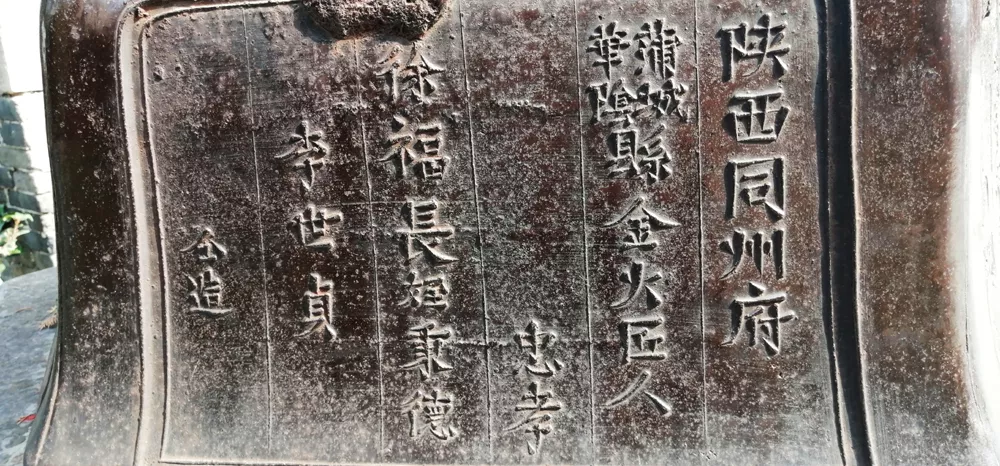 陝西同州府
蒲城華陰縣金火匠人
忠孝
徐福長姪秉德
李世貞
仝造